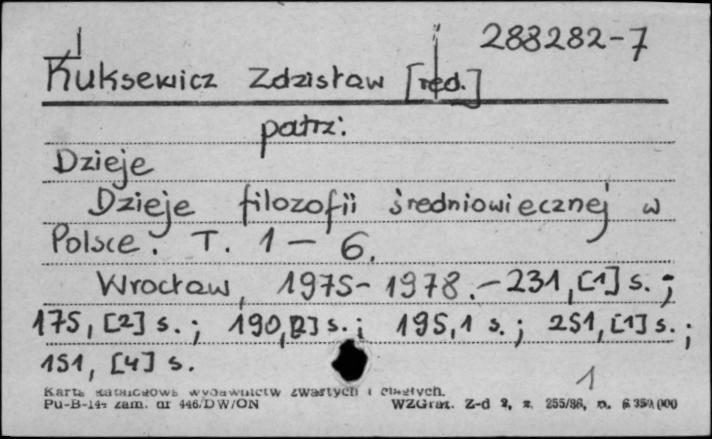 288282-7
Kuksewicz Zdzisław [red.]
patrz:
Dzieje
Dzieje filozofii średniowiecznej w
Polsce. T. 1 – 6.
Wrocław, 1975-1978. – 231, [1] s. ;
175, [2] s. ; 190, [2] s. ; 195, 1 s. ; 251, [1] s. ;
151, [4] s.
1
Karta katalogowa wydawnictw zwartych i ciągłych.
Pu-B-14 zam. nr 446/DW/ON WZGraf. Z-d 2, z. 255/86, n. 6 350 000